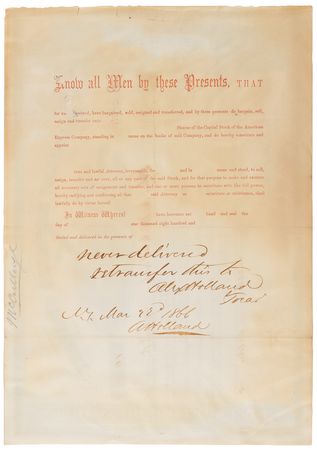 Know all Men by these Presents, THAT
for value received, have bargained, sold, assigned and transferred, and by these presents do bargain, sell,
assign and transfer unto
Shares of the Capital Stock of the American
Express Company, standing in name on the books of said Company, and do hereby constitute and
appoint
true and lawful Attorney, irrevocable, for and in name and stead, to sell,
assign, transfer and set over, all or any part of the said Stock, and for that purpose to make and execute
all necessary acts of assignment and transfer, and one or more persons to substitute with like full power,
hereby ratifying and confirming all that said Attorney or substitute or substitutes, shall
lawfully do by virtue hereof.
In Witness Whereof have hereunto set hand and seal the
day of one thousand eight hundred and
Sealed and delivered in the presence of
never delivered
retransfer this to
Alex Holland
Treas
N.Y. Mar 22d 1866
A Holland